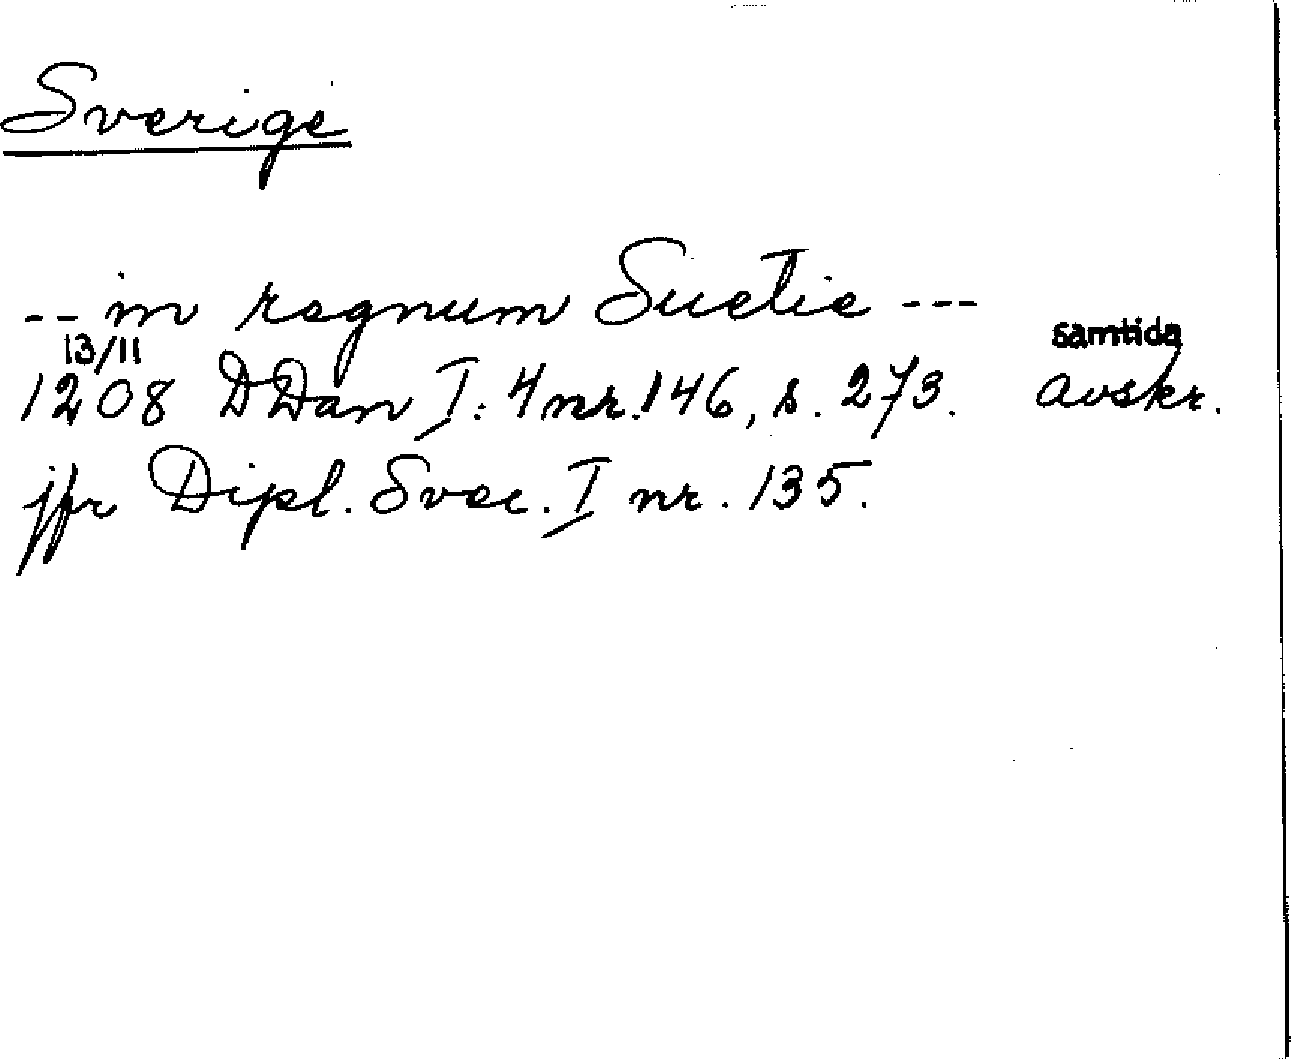 Sverige
-- in regnum Suetie ---
13/11 samtida
1208 DDan I:4 nr. 146, s. 273. avskr.
jfr Dipl. Svec. I nr. 135.